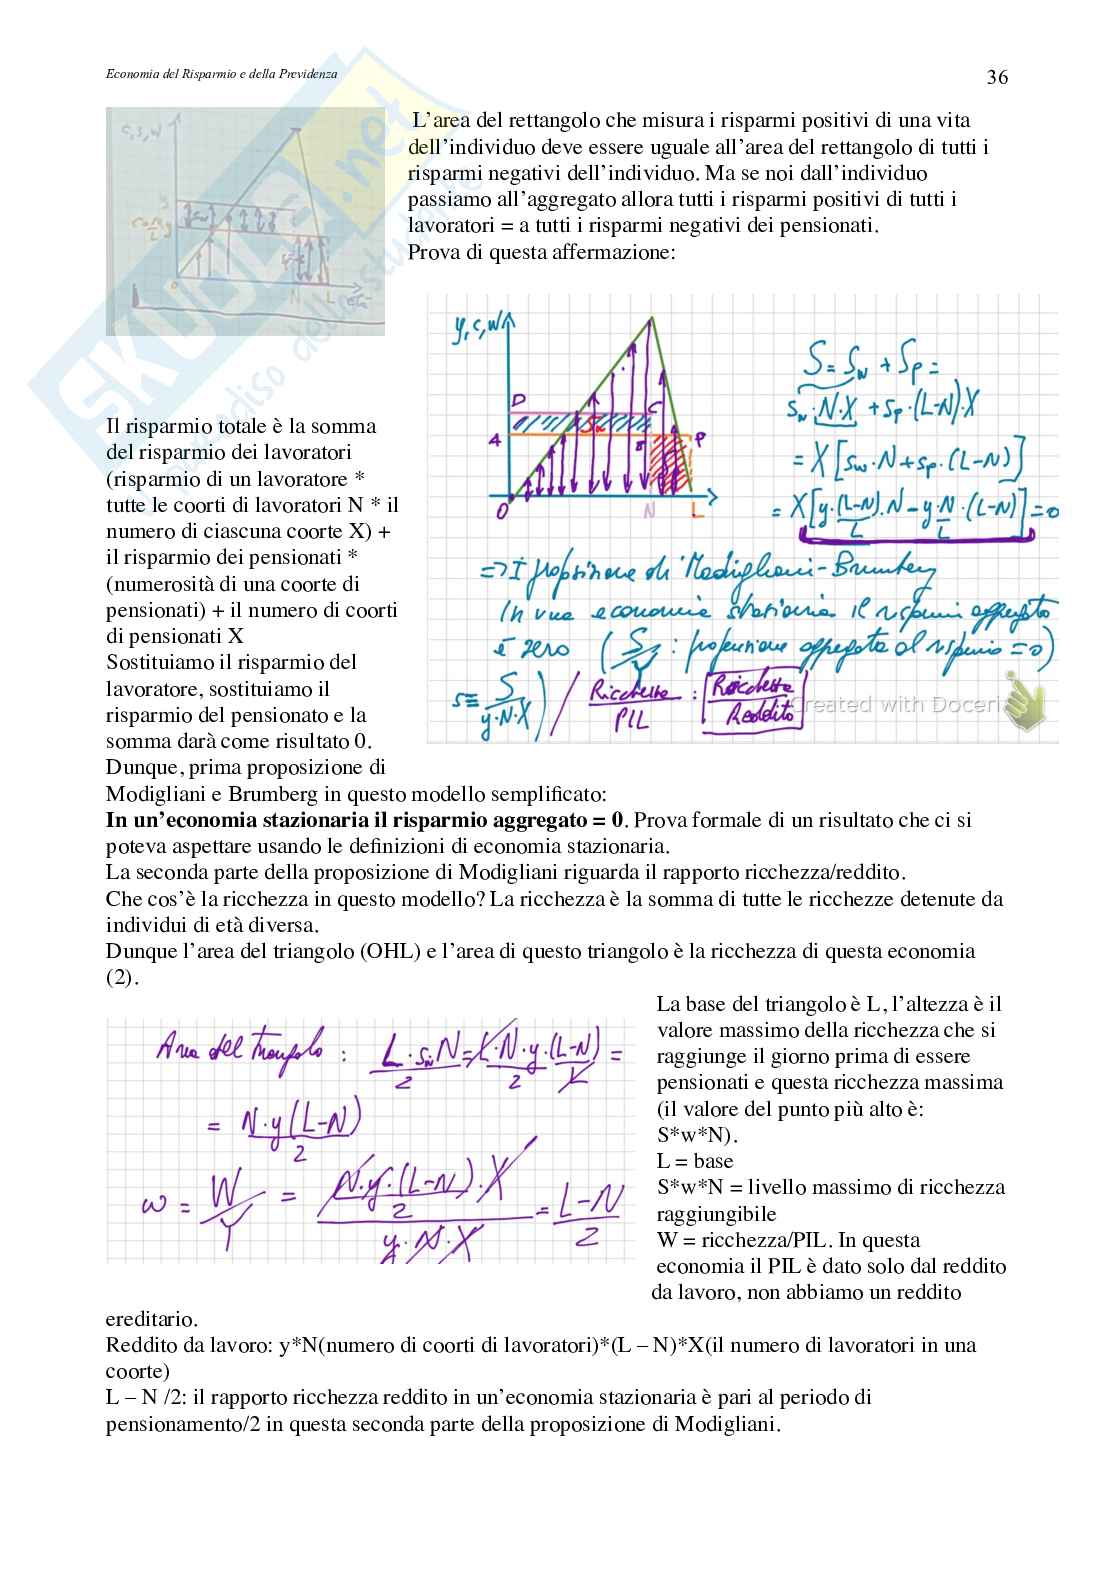 Economia del Risparmio e della Previdenza
36
L’area del rettangolo che misura i risparmi positivi di una vita
dell’individuo deve essere uguale all’area del rettangolo di tutti i
risparmi negativi dell’individuo. Ma se noi dall’individuo
passiamo all’aggregato allora tutti i risparmi positivi di tutti i
lavoratori = a tutti i risparmi negativi dei pensionati.
Prova di questa affermazione:
y, c, w
D
C
A
B
P
O
N
L
S = S_N + S_P =
s_N · N · X + s_P · (L-N) · X
= X [s_w · N + s_P · (L-N)]
= X [y · (L-N)/L · N - y · N/L · (L-N)] = 0
=> I proposizione di Modigliani-Brumberg
In una economia stazionaria il risparmio aggregato
è zero (S/Y : propensione aggregata al risparmio = 0)
s = S/(y·N·X) / Ricchezza/PIL : Ricchezza/Reddito
Created with Doceri
Il risparmio totale è la somma
del risparmio dei lavoratori
(risparmio di un lavoratore *
tutte le coorti di lavoratori N * il
numero di ciascuna coorte X) +
il risparmio dei pensionati *
(numerosità di una coorte di
pensionati) + il numero di coorti
di pensionati X
Sostituiamo il risparmio del
lavoratore, sostituiamo il
risparmio del pensionato e la
somma darà come risultato 0.
Dunque, prima proposizione di
Modigliani e Brumberg in questo modello semplificato:
In un’economia stazionaria il risparmio aggregato = 0. Prova formale di un risultato che ci si
poteva aspettare usando le definizioni di economia stazionaria.
La seconda parte della proposizione di Modigliani riguarda il rapporto ricchezza/reddito.
Che cos’è la ricchezza in questo modello? La ricchezza è la somma di tutte le ricchezze detenute da
individui di età diversa.
Dunque l’area del triangolo (OHL) e l’area di questo triangolo è la ricchezza di questa economia
(2).
Area del Triangolo : L · s_N N/2 = L·N·y·(L-N)/2 L =
= N·y(L-N)/2
w = W/Y = N·y·(L-N)·X/2 / y·N·X = L-N/2
La base del triangolo è L, l’altezza è il
valore massimo della ricchezza che si
raggiunge il giorno prima di essere
pensionati e questa ricchezza massima
(il valore del punto più alto è:
S*w*N).
L = base
S*w*N = livello massimo di ricchezza
raggiungibile
W = ricchezza/PIL. In questa
economia il PIL è dato solo dal reddito
da lavoro, non abbiamo un reddito
ereditario.
Reddito da lavoro: y*N(numero di coorti di lavoratori)*(L – N)*X(il numero di lavoratori in una
coorte)
L – N /2: il rapporto ricchezza reddito in un’economia stazionaria è pari al periodo di
pensionamento/2 in questa seconda parte della proposizione di Modigliani.